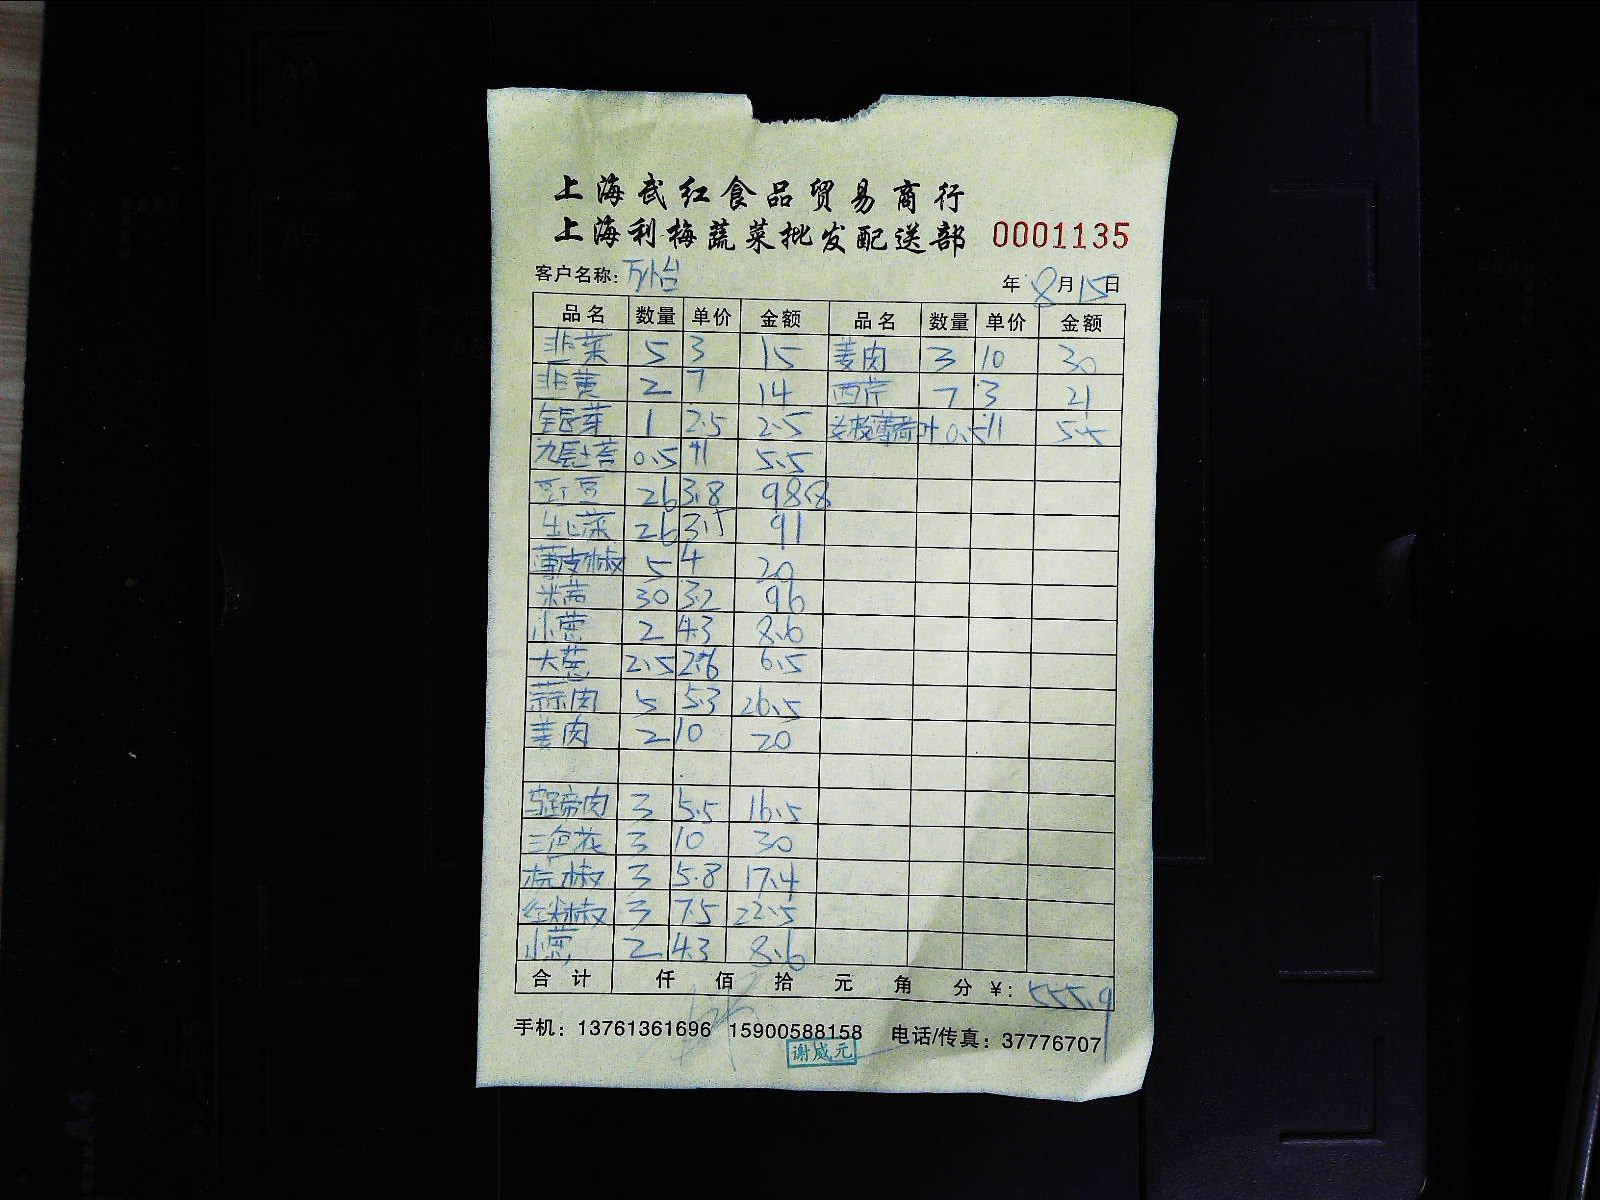 上海武红食品贸易商行
上海利梅蔬菜批发配送部 0001135
客户名称: 万怡 年 8月15日
品名 数量 单价 金额 品名 数量 单价 金额
韭菜 5 3 15 姜肉 3 10 30
韭黄 2 7 14 西芹 7 3 21
银芽 1 2.5 2.5 薄荷叶 0.5 11 5.5
九层塔 0.5 11 5.5
豇豆 26 3.8 98.8
生菜 26 3.5 91
薄皮椒 5 4 20
米茄 30 3.2 96
小葱 2 4.3 8.6
大葱 2.5 2.6 6.5
蒜肉 5 5.3 26.5
姜肉 2 10 20
马蹄肉 3 5.5 16.5
三色花 3 10 30
杭椒 3 5.8 17.4
红米椒 3 7.5 22.5
小葱 2 4.3 8.6
合计 仟 佰 拾 元 角 分 ¥: 555.9
手机: 13761361696 15900588158 电话/传真: 37776707
谢威元